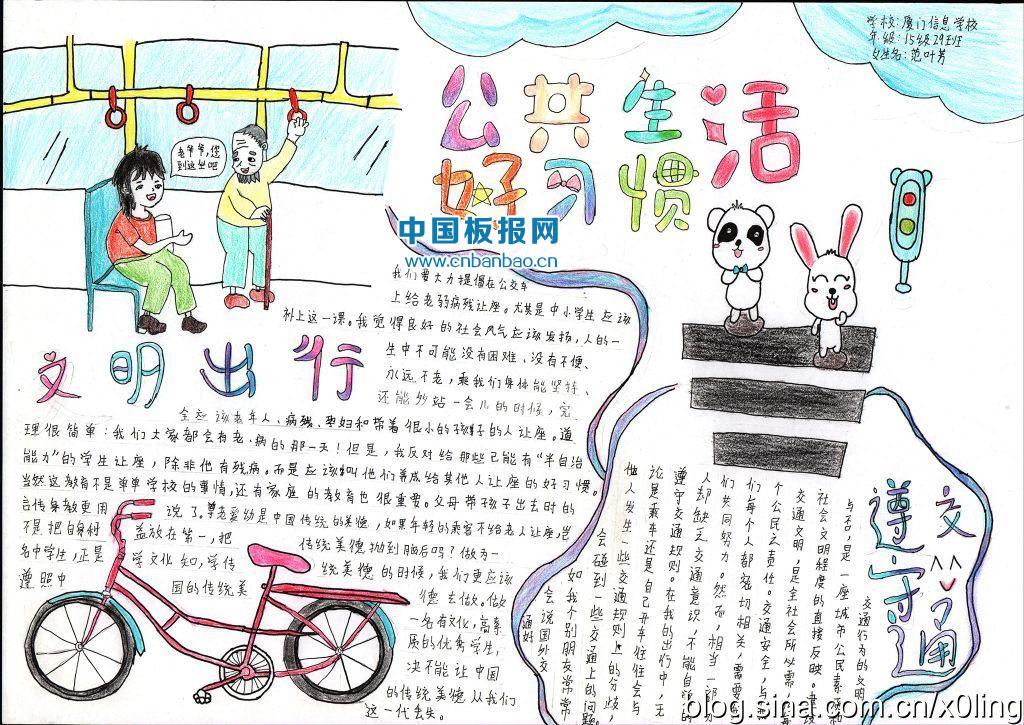 学校:厦门信息学校
年级:15级29班
女生名:范叶芳
公共生活
好习惯
老爷爷,您
到这坐吧
中国板报网
www.cnbanbao.cn
文明出行
我们要大力提倡在公交车
上给老弱病残让座。尤其是中小学生应该
补上这一课。我觉得良好的社会风气应该发扬,人的一
生中不可能没有困难、没有不便、
永远不老,乘我们身体能坚持、
还能够站一会儿的时候,完
全应该老年人、病残、孕妇和带着很小的孩子的人让座。道
理很简单:我们大家都会有老、病的那一天!但是,我反对给那些已能有“半自治
能力”的学生让座,除非他有残病。而是应该叫他们养成给其他人让座的好习惯。
当然这教育不是单单学校的事情,还有家庭的教育也很重要。父母带孩子出去时的
言传身教更用说了。尊老爱幼是中国传统的美德,如果年轻的乘客不给老人让座,岂
不是把自身利益放在第一,把传统美德抛到脑后吗?做为一
名中学生,正是学文化知,学传统美德的时候,我们更应该
遵照中国的传统美德去做。做
一名有文化,高素
质的优秀学生,
决不能让中国
的传统美德从我们
这一代丢失。
遵守交通
交通行为的文明
与否,是一座城市公民素质和
社会文明程度的直接反映。
交通文明,是全社会所必需,
个公民之责任。交通安全,与
们每个人都密切相关,需要
们共同努力。然而,相当一部
人却缺乏交通意识,不能自觉
遵守交通规则。在我的出行中,无
论是乘车还是自己开车往往会与
他人发生一些交通规则上的分歧,
会碰到一些交通上的问题。
如我个别朋友常常
会说国外交
通好
blog.sina.com.cn/x0ling